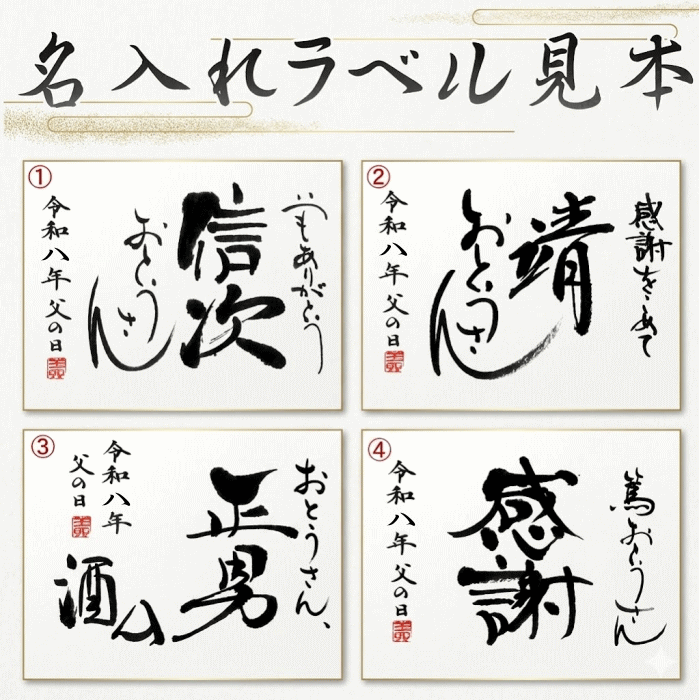 名入れラベル見本
①
いつもありがとう
信次
おとうさん
令和八年 父の日
②
感謝をこめて
靖
おとうさん
令和八年 父の日
③
おとうさん、
正男
酒
令和八年
父の日
④
篤おとうさん
感謝
令和八年 父の日